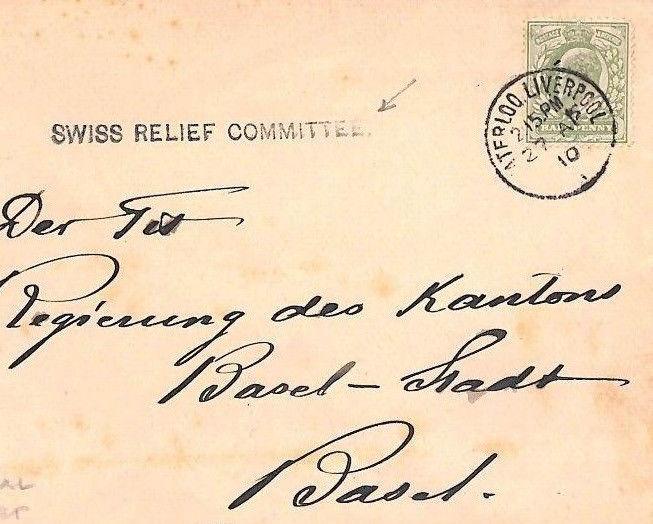 SWISS RELIEF COMMITTEE.
ATERLOO. LIVERPOOL
2.15 PM
27 AU
10
HALFPENNY
Der Tit
Regierung des Kantons
Basel-Stadt
Basel.